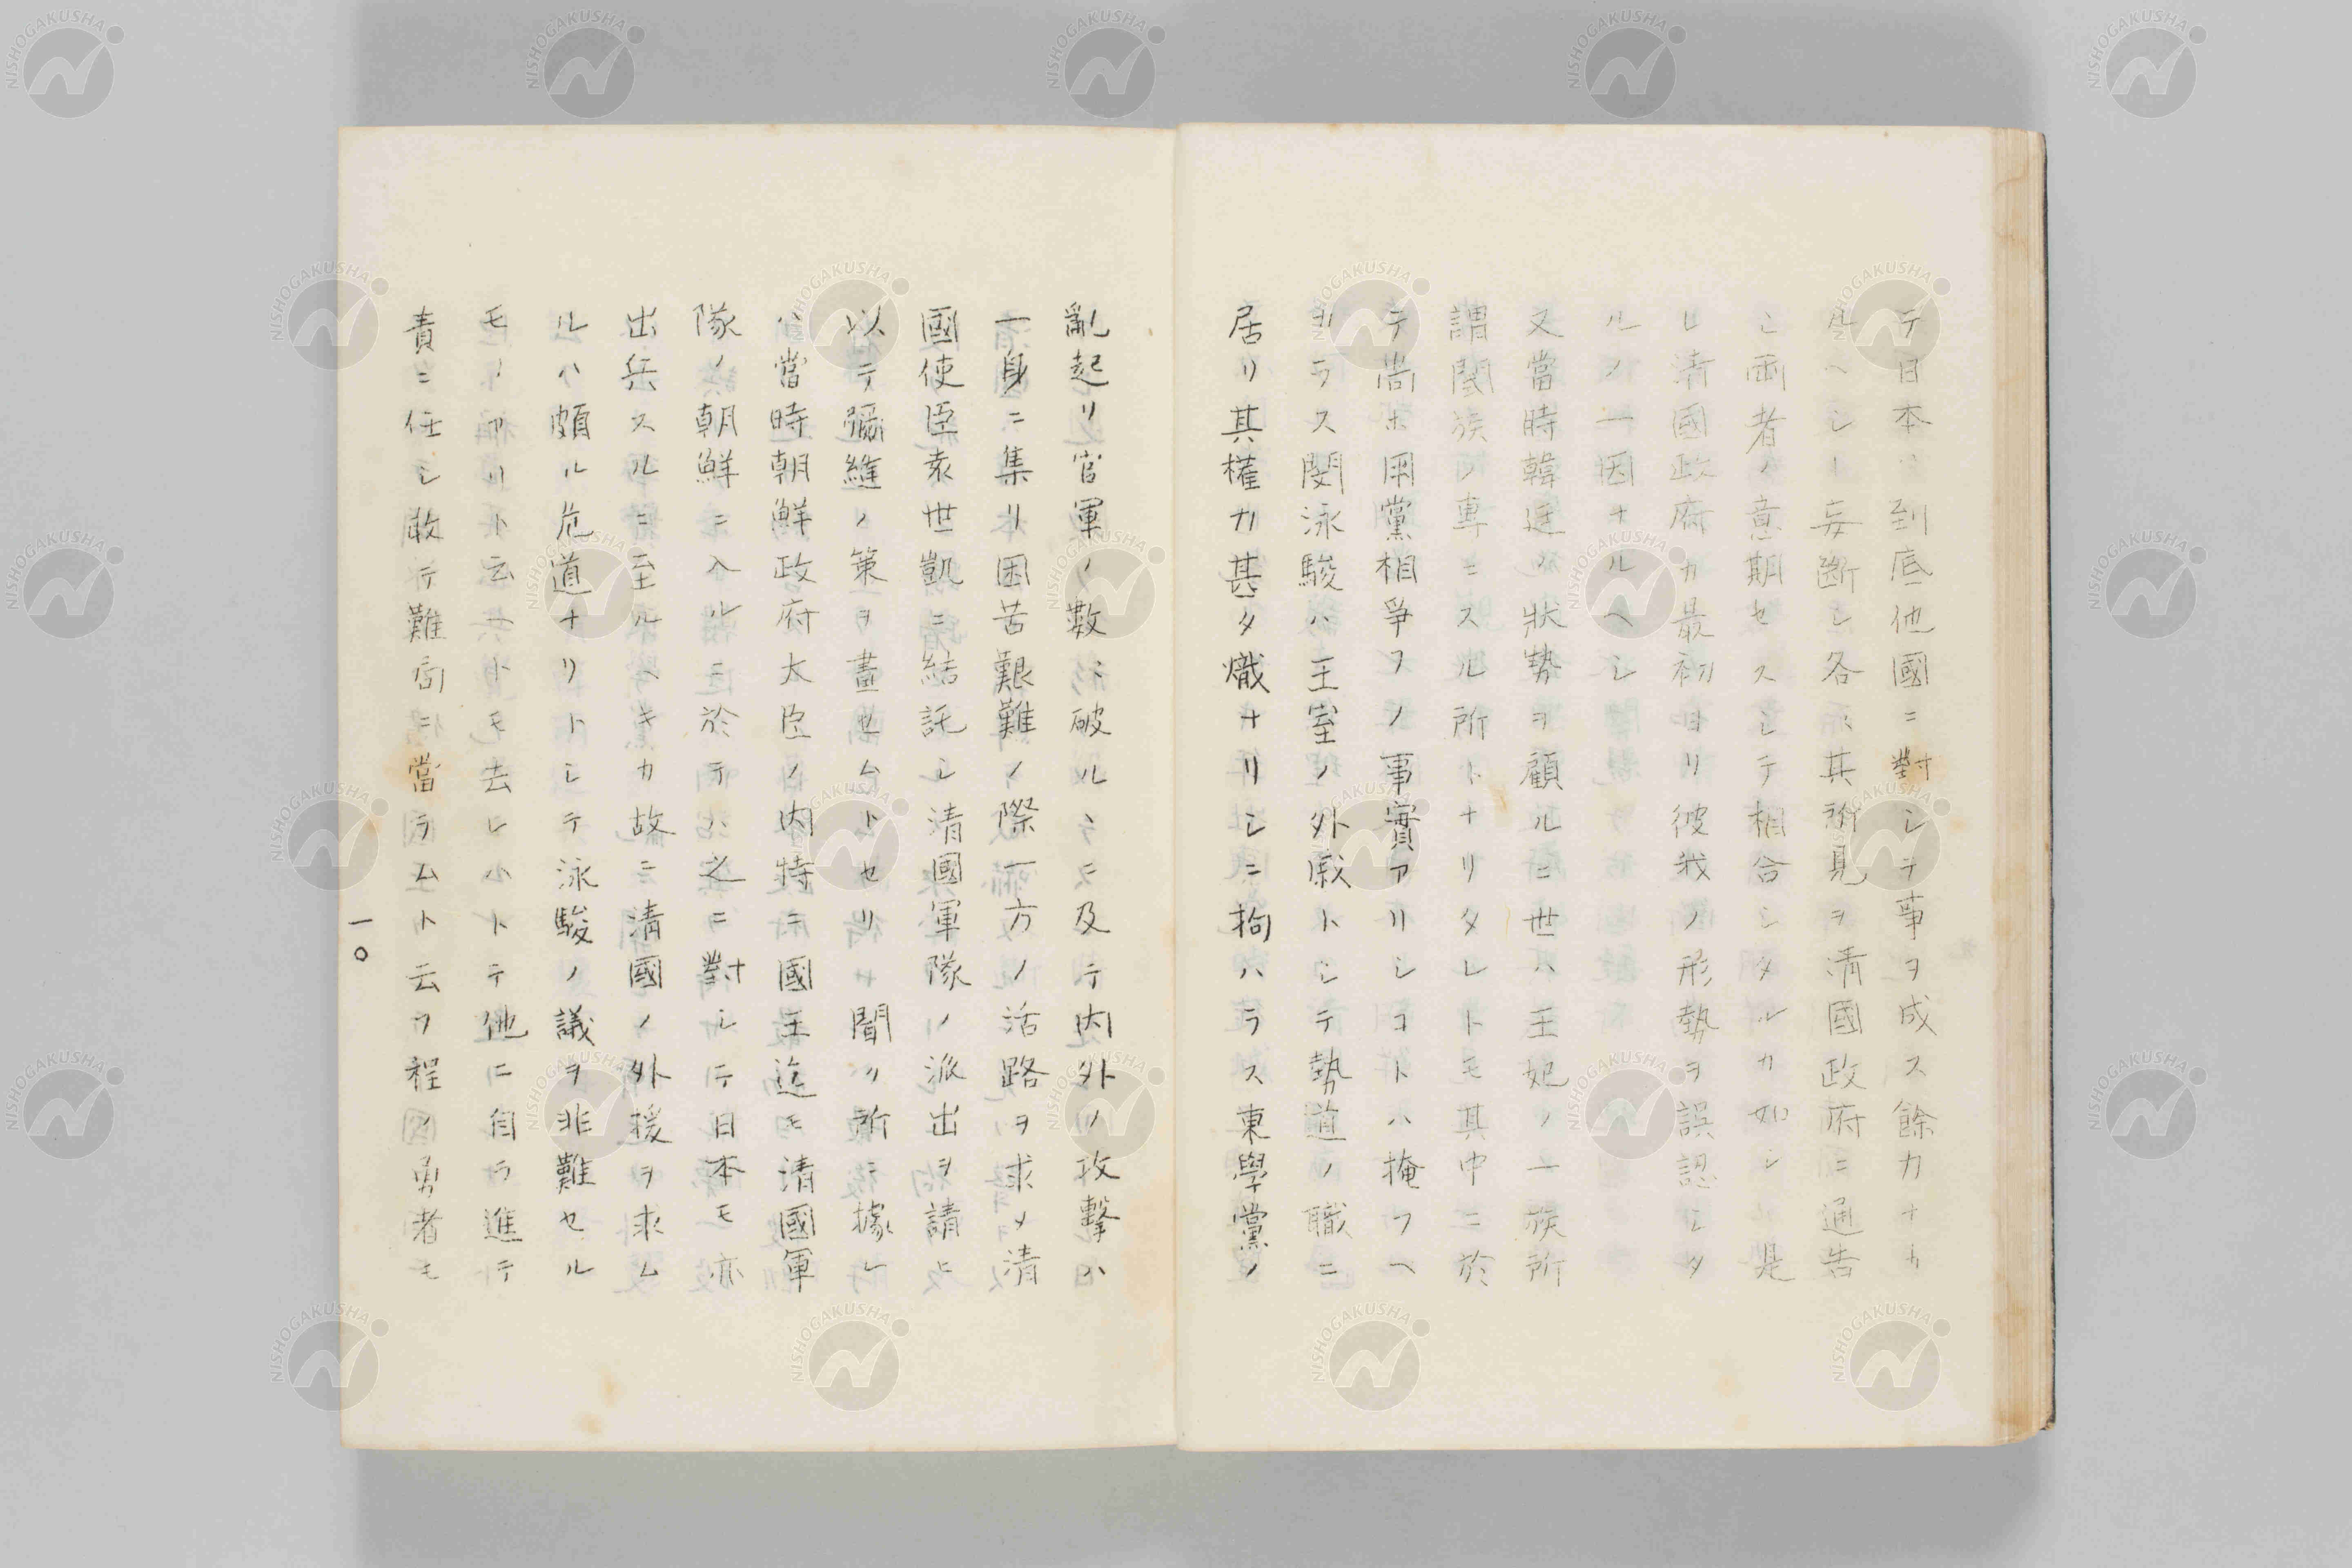 テ日本ハ到底他國ニ對シテ事ヲ成ス餘力ナカ
ルヘシト妄斷シ各〻其所見ヲ清國政府ニ通告
シ両者ノ意期セスシテ相合シタルカ如シ是
レ清國政府カ最初ヨリ彼我ノ形勢ヲ誤認シタ
ルノ一因ナルヘシ
又當時韓廷ノ狀勢ヲ顧ルニ世ハ王妃ノ一族所
謂閔族ノ專ニスル所トナリタレトモ其中ニ於
テ尚ホ朋黨相爭フノ事實アリシコトハ掩フヘ
カラス閔泳駿ハ王室ノ外戚トシテ勢道ノ職ニ
居リ其權力甚タ熾ナリシニ拘ハラス東學黨ノ
亂起リ官軍ノ數〻破ルヽニ及テ内外ノ攻擊ハ
一身ニ集リ困苦艱難ノ際一方ノ活路ヲ求メ清
國使臣袁世凱ニ結託シ清國軍隊ノ派出ヲ請ヒ
以テ彌縫ノ策ヲ畫セムトセリ聞ク所ニ據レ
ハ當時朝鮮政府大臣ノ内特ニ國王迄モ清國軍
隊ノ朝鮮ニ入ルニ於テハ之ニ對シテ日本モ亦
出兵スルニ至ルヘキカ故ニ清國ノ外援ヲ求ム
ルハ頗ル危道ナリトシテ泳駿ノ議ヲ非難セル
モノアリト云ヘトモ去レハトテ他ニ自ラ進テ
責ニ任シ敢テ難局ニ當ラムト云フ程ノ勇者モ
一〇
NISHOGAKUSHA